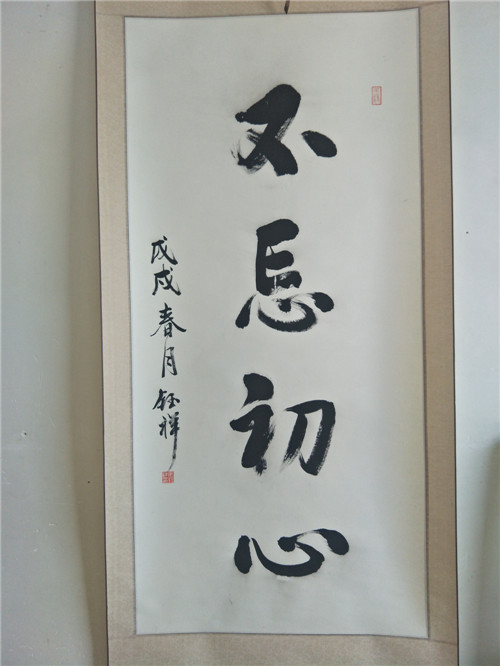 不忘初心
戊戌春月钰祥